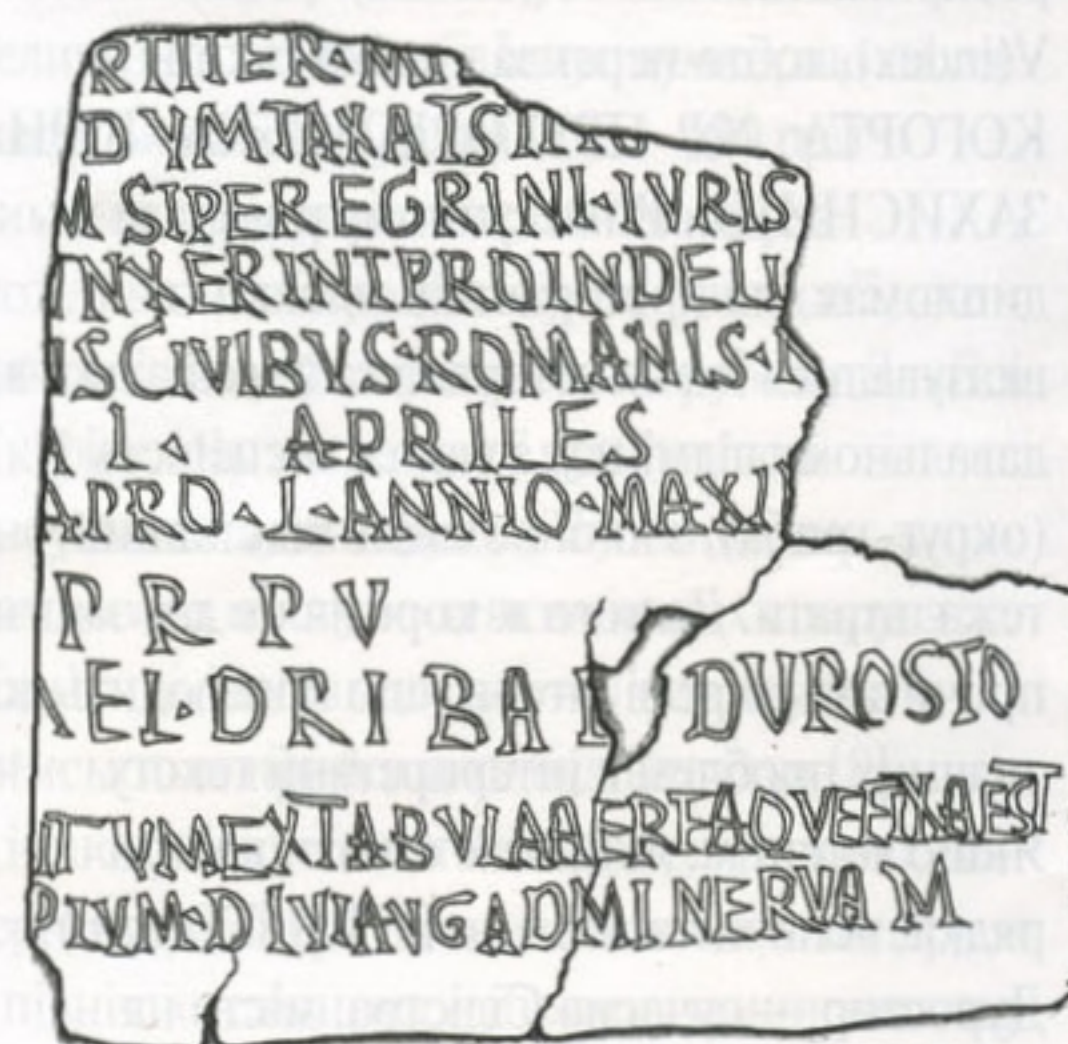 RTITER·MIL
DVMTAXAT IS
M SI PEREGRINI·IVRIS
INXERINT PROINDE LI
IS CIVIBVS·ROMANIS·
A L· APRILES
APRO·L·ANNIO·MAXI
P R P V
AEL·DRIBAL DUROSTO
ITVM EX TABVLA AEREA QVE FIXA EST
PLVM·DIVI AVG AD MINERVAM